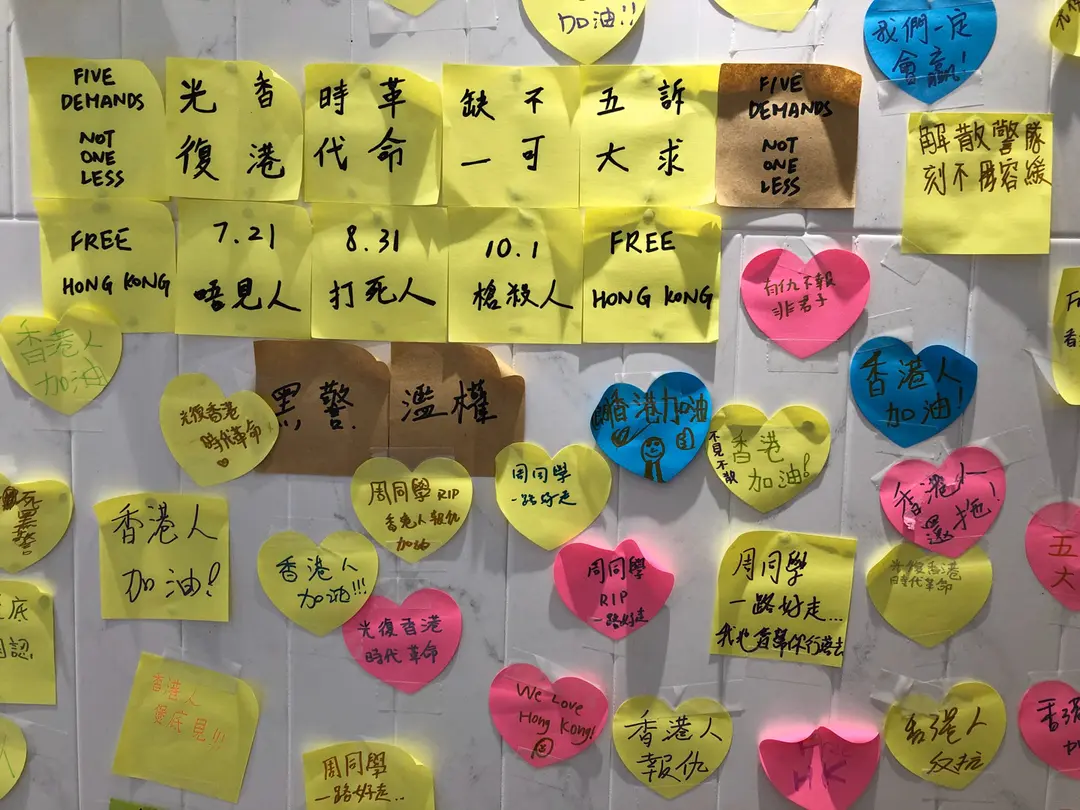 加油!!
我們一定
會贏!
FIVE
DEMANDS
NOT
ONE
LESS
光 香
復 港
時 革
代 命
缺 不
一 可
五 訴
大 求
FIVE
DEMANDS
NOT
ONE
LESS
解散警隊
刻不容緩
FREE
HONG KONG
7.21
唔見人
8.31
打死人
10.1
槍殺人
FREE
HONG KONG
有仇不報
非君子
香港人
加油
光復香港
時代革命
黑警
濫權
香港加油
香港
加油!
不見不散
香港人
加油!
周同學 RIP
香港人報仇
加油
周同學
一路好走
香港人
還拖!
香港人
加油!
香港人
加油!!!
周同學
RIP
一路好走
周同學
一路好走...
光復香港
時代革命
五
大
光復香港
時代革命
香港人
煲底見!!!
We Love
Hong Kong!
香港人
報仇
香港人
反抗
周同學
一路好走...